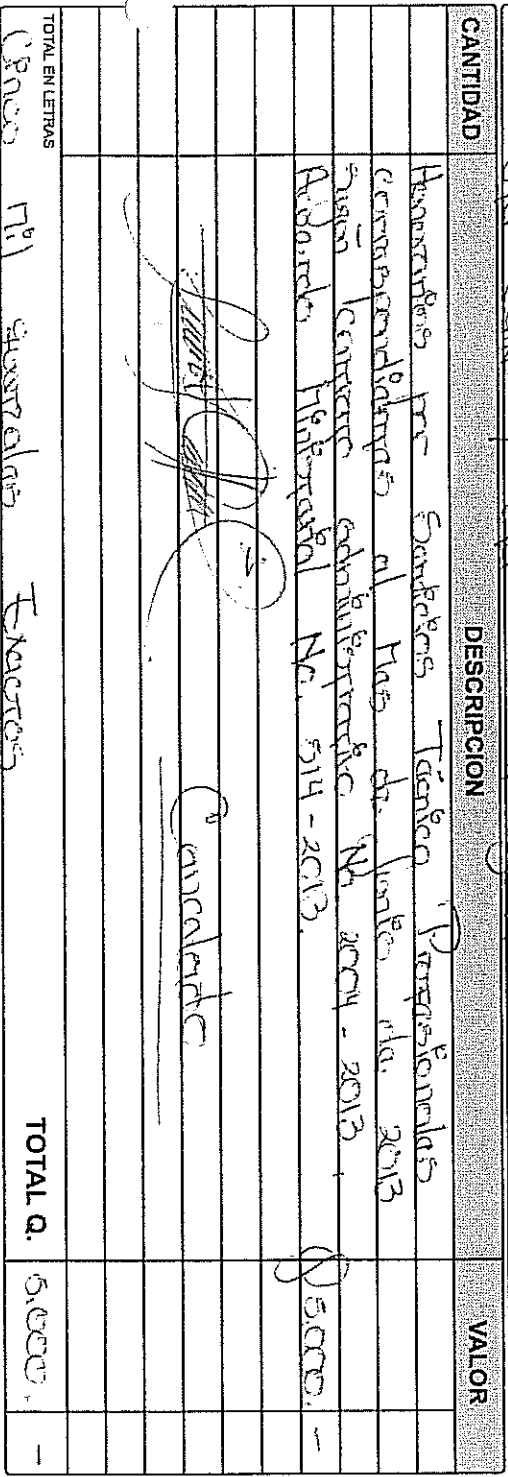 CANTIDAD DESCRIPCION VALOR
Honorarios por Servicios Técnico Profesionales
correspondientes al Mes de Junio de 2013
Según Contrato administrativo No 2004-2013
Acuerdo Ministerial No. 514-2013. Q 5,000.-
Cancelado
TOTAL EN LETRAS
Cinco Mil Quetzales Exactos TOTAL Q. 5,000. -